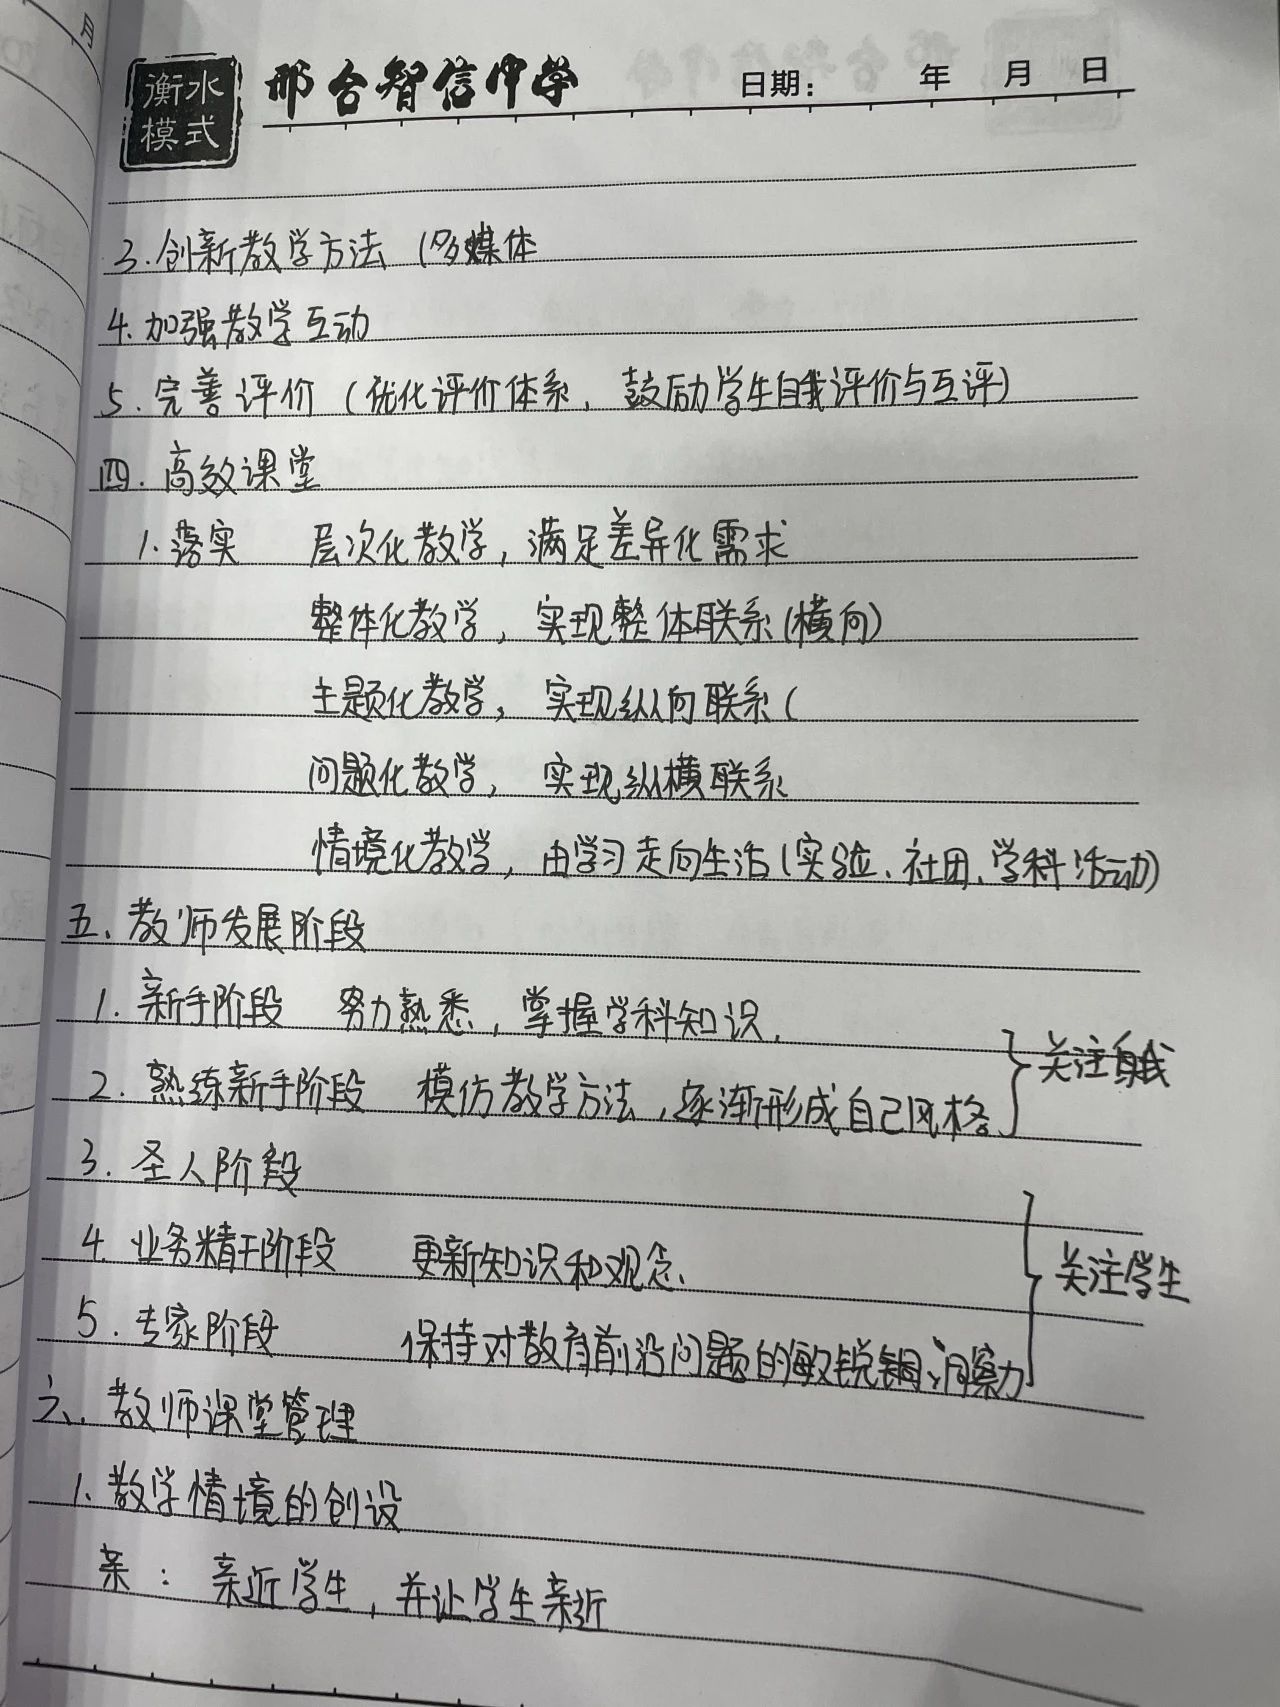 月
衡水
模式
邢台智信中学 日期： 年 月 日
3.创新教学方法 (多媒体
4.加强教学互动
5.完善评价 (优化评价体系，鼓励学生自我评价与互评)
四.高效课堂
1.落实 层次化教学，满足差异化需求
整体化教学，实现整体联系(横向)
主题化教学，实现纵向联系(
问题化教学，实现纵横联系
情境化教学，由学习走向生活(实验、社团、学科活动)
五、教师发展阶段
1.新手阶段 努力熟悉，掌握学科知识，
2.熟练新手阶段 模仿教学方法，逐渐形成自己风格
关注自我
3.圣人阶段
4.业务精干阶段 更新知识和观念、
5.专家阶段 保持对教育前沿问题的敏锐 洞察力
关注学生
六、教师课堂管理
1.教学情境的创设
亲：亲近学生，并让学生亲近